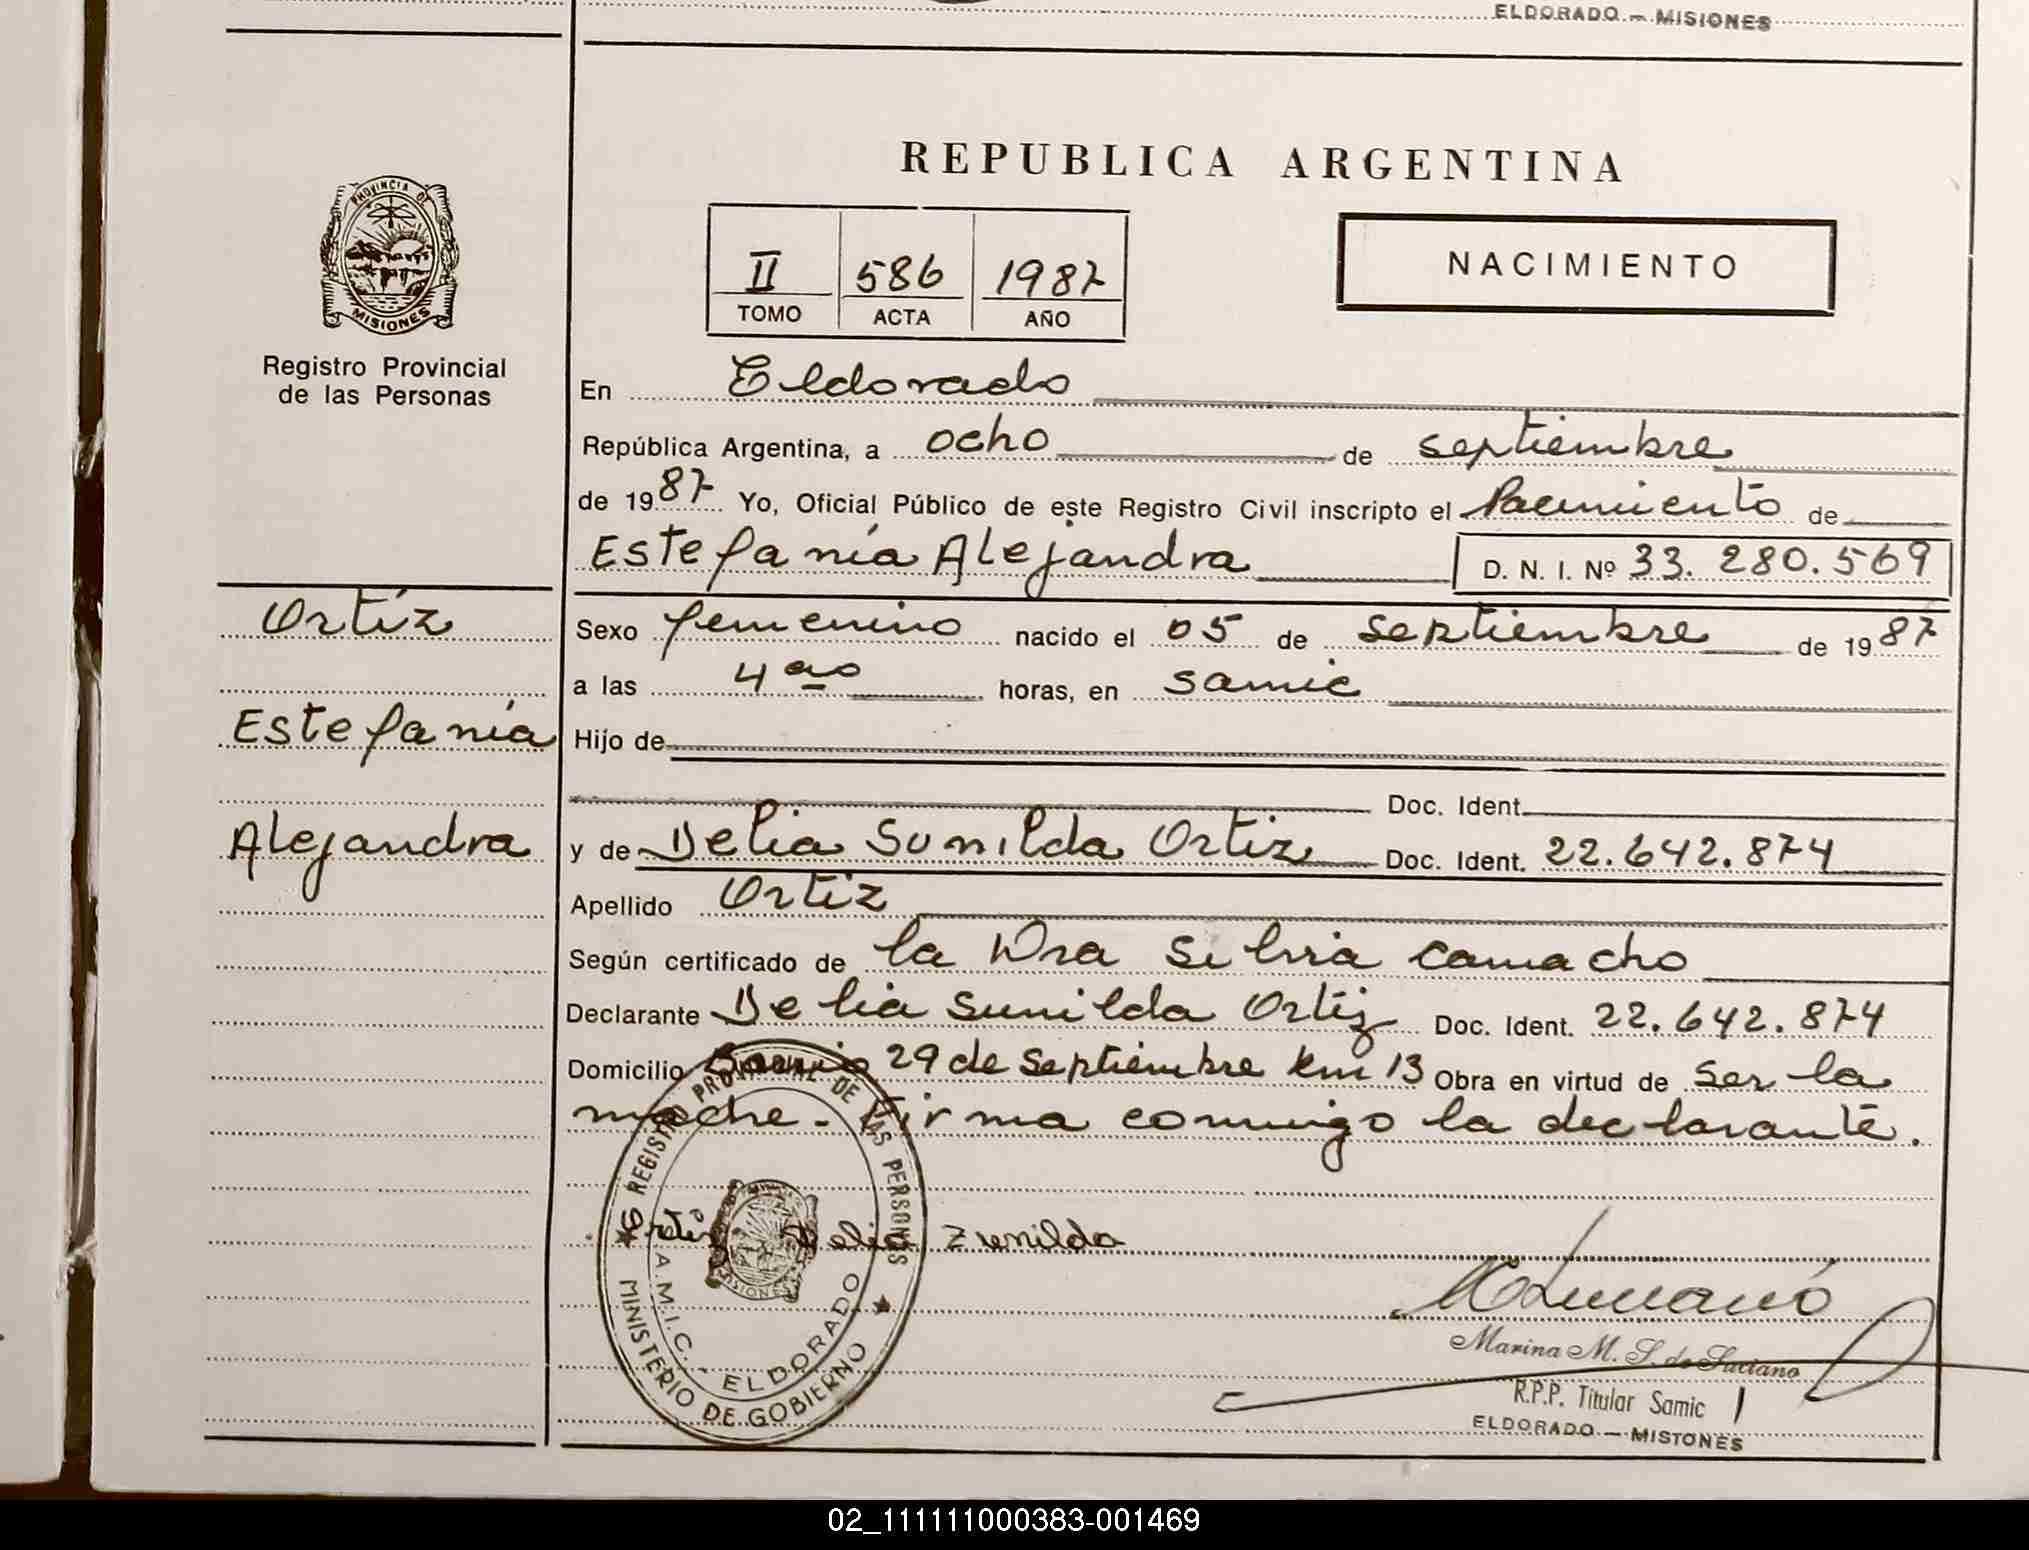 ELDORADO — MISIONES
PROVINCIA DE
MISIONES
Registro Provincial
de las Personas
Ortíz
Estefanía
Alejandra
REPUBLICA ARGENTINA
II 586 1987
TOMO ACTA AÑO
NACIMIENTO
En Eldorado
República Argentina, a ocho de septiembre
de 1987 Yo, Oficial Público de este Registro Civil inscripto el Nacimiento de
Estefanía Alejandra D. N. I. Nº 33.280.569
Sexo femenino nacido el 05 de septiembre de 1987
a las 4 horas, en Samic
Hijo de
Doc. Ident.
y de Delia Sunilda Ortiz Doc. Ident. 22.642.874
Apellido Ortiz
Según certificado de la Dra Silvia Camacho
Declarante Delia Sunilda Ortiz Doc. Ident. 22.642.874
Domicilio Barrio 29 de septiembre km 13 Obra en virtud de ser la
madre. Firma conmigo la declarante.
Ortiz Delia Zunilda
REGISTRO PROVINCIAL DE LAS PERSONAS
MINISTERIO DE GOBIERNO
S.A.M.I.C. - ELDORADO
MISIONES
Marina M. S. de Luciano
R.P.P. Titular Samic
ELDORADO — MISIONES
02_111111000383-001469